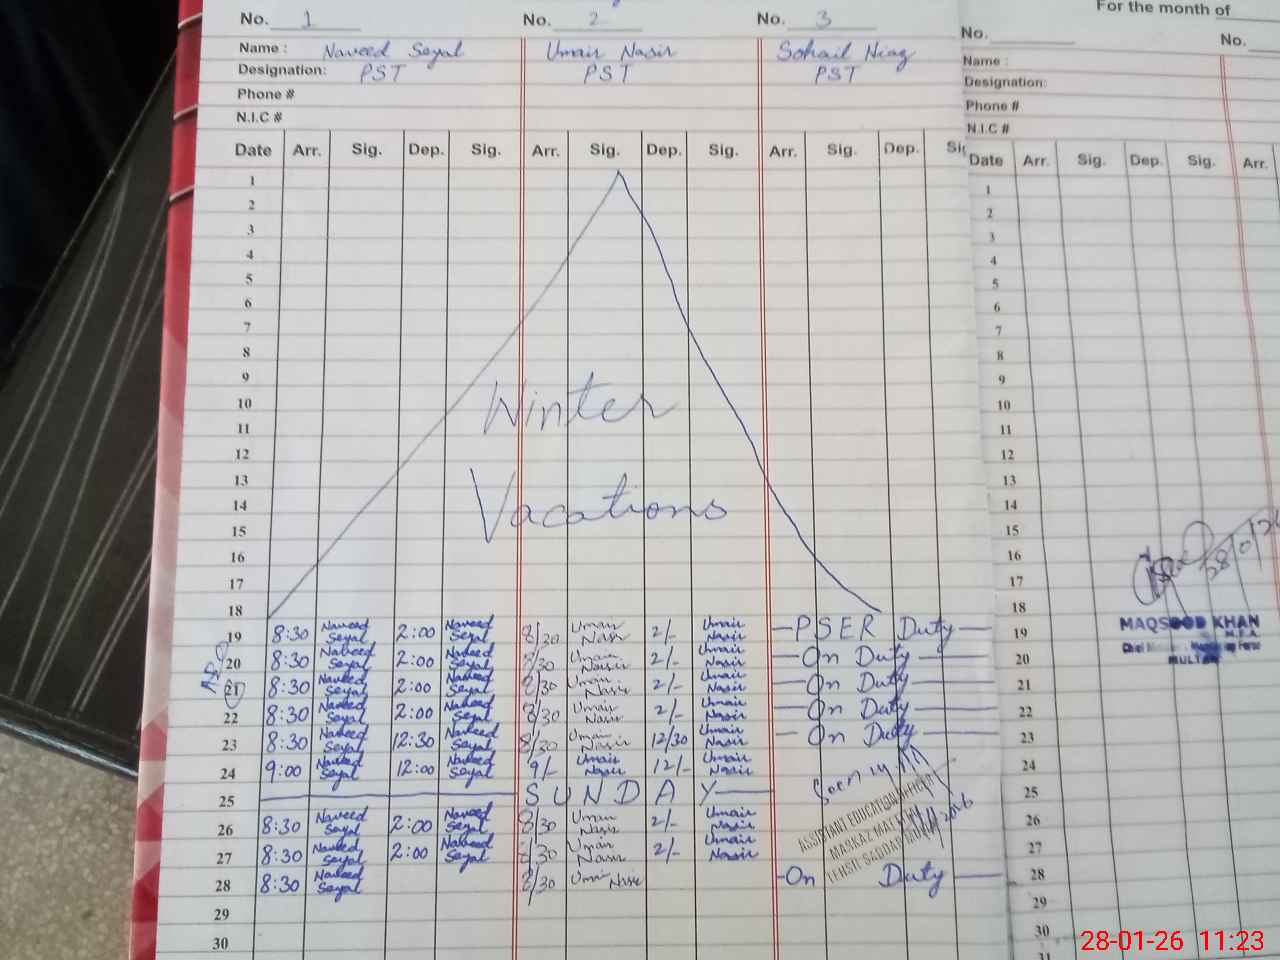 For the month of
No. 1 No. 2 No. 3
Name : Naveed Seyal Umair Nasir Sohail Niaz
Designation: PST PST PST
Phone #
N.I.C #
Date Arr. Sig. Dep. Sig. Arr. Sig. Dep. Sig. Arr. Sig. Dep.
1
2
3
4
5
6
7
8
9
10
11
12
13
14
15
16
17
18
Winter
Vacations
19 8:30 Naveed Seyal 2:00 Naveed Seyal 8/30 Umair Nasir 2/- Umair Nasir PSER Duty
20 8:30 Naveed Seyal 2:00 Naveed Seyal 8/30 Umair Nasir 2/- Umair Nasir On Duty
21 8:30 Naveed Seyal 2:00 Naveed Seyal 8/30 Umair Nasir 2/- Umair Nasir On Duty
22 8:30 Naveed Seyal 2:00 Naveed Seyal 8/30 Umair Nasir 2/- Umair Nasir On Duty
23 8:30 Naveed Seyal 12:30 Naveed Seyal 8/30 Umair Nasir 12/30 Umair Nasir On Duty
24 9:00 Naveed Seyal 12:00 Naveed Seyal 9/- Umair Nasir 12/- Umair Nasir
25 SUNDAY
26 8:30 Naveed Seyal 2:00 Naveed Seyal 8/30 Umair Nasir 2/- Umair Nasir
27 8:30 Naveed Seyal 2:00 Naveed Seyal 8/30 Umair Nasir 2/- Umair Nasir
28 8:30 Naveed Seyal 8/30 Umair Nasir On Duty
29
30
Seen
ASSISTANT EDUCATION OFFICER
MARKAZ
TEHSIL SADDAR
No. No.
Name :
Designation:
Phone #
N.I.C #
Date Arr. Sig. Dep. Sig. Arr.
1
2
3
4
5
6
7
8
9
10
11
12
13
14
15
16
17
18
19
20
21
22
23
24
25
26
27
28
29
30
31
MAQSOOD KHAN
MULTAN
28-01-26 11:23